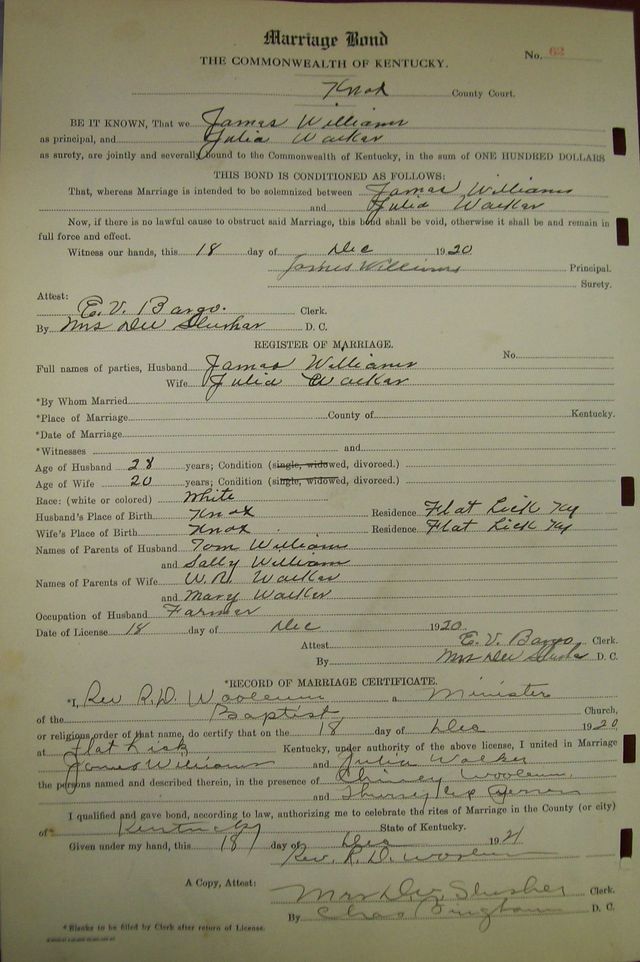 Marriage Bond
No. 62
THE COMMONWEALTH OF KENTUCKY.
Knox County Court.
BE IT KNOWN, That we James Williams
as principal, and Julia Walker
as surety, are jointly and severally bound to the Commonwealth of Kentucky, in the sum of ONE HUNDRED DOLLARS
THIS BOND IS CONDITIONED AS FOLLOWS:
That, whereas Marriage is intended to be solemnized between James Williams
and Julia Walker
Now, if there is no lawful cause to obstruct said Marriage, this bond shall be void, otherwise it shall be and remain in
full force and effect.
Witness our hands, this 18 day of Dec 1920
James Williams Principal.
Surety.
Attest:
E. V. Bargo. Clerk.
By Mrs Dee Slusher D. C.
REGISTER OF MARRIAGE.
Full names of parties, Husband James Williams No.
Wife Julia Walker
*By Whom Married
*Place of Marriage County of Kentucky.
*Date of Marriage
*Witnesses and
Age of Husband 28 years; Condition (single, widowed, divorced.)
Age of Wife 20 years; Condition (single, widowed, divorced.)
Race: (white or colored) White
Husband's Place of Birth Knox Residence Flat Lick Ky
Wife's Place of Birth Knox Residence Flat Lick Ky
Names of Parents of Husband Tom Williams
and Sally Williams
Names of Parents of Wife W. R. Walker
and Mary Walker
Occupation of Husband Farmer
Date of License 18 day of Dec 1920.
Attest E. V. Bargo Clerk.
By Mrs Dee Slusher D. C.
*RECORD OF MARRIAGE CERTIFICATE.
*I, Rev R. D. Woolum a Minister
of the Baptist Church,
or religious order of that name, do certify that on the 18 day of Dec 1920
at Flat Lick Kentucky, under authority of the above license, I united in Marriage
James Williams and Julia Walker
the persons named and described therein, in the presence of Woolum
and
I qualified and gave bond, according to law, authorizing me to celebrate the rites of Marriage in the County (or city)
of Kentucky State of Kentucky.
Given under my hand, this 18 day of Dec 1921
Rev. R. D. Woolum
A Copy, Attest: Mrs Dee Slusher Clerk.
By Chas Bingham D. C.
*Blanks to be filled by Clerk after return of License.